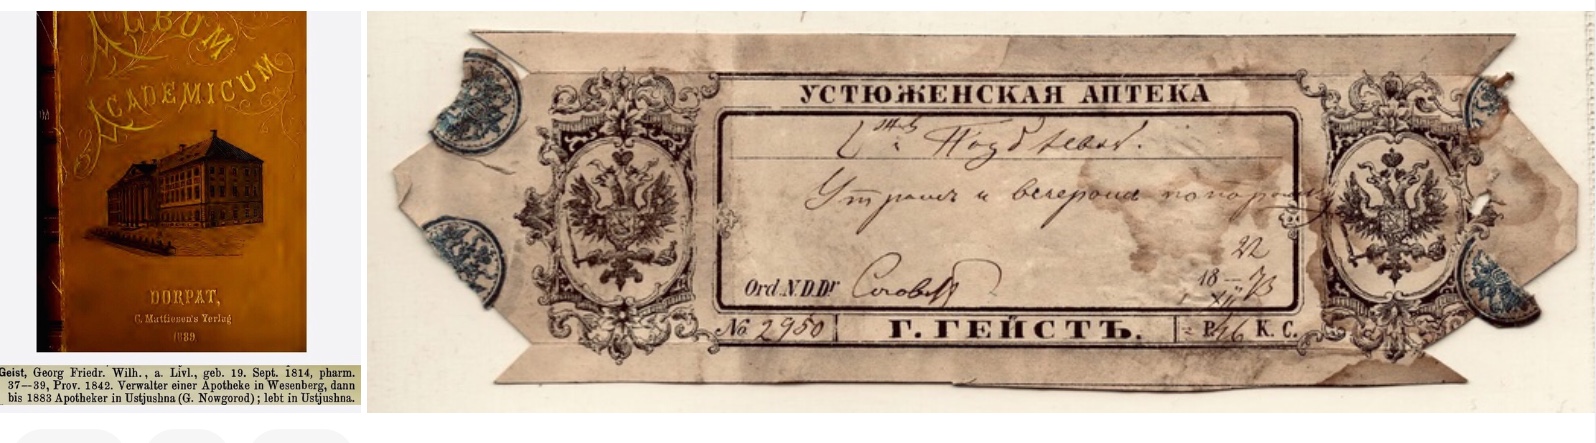 ALBUM
ACADEMICUM
DORPAT,
C. Mattiesen's Verlag
1889
Geist, Georg Friedr. Wilh., a. Livl., geb. 19. Sept. 1814, pharm.
37—39, Prov. 1842. Verwalter einer Apotheke in Wesenberg, dann
bis 1883 Apotheker in Ustjushna (G. Nowgorod); lebt in Ustjushna.
УСТЮЖЕНСКАЯ АПТЕКА
Утромъ и вечеромъ по
22
Ord. N.D.Dr
18 — 73
XII
№ 2950
Г. ГЕЙСТЪ.
Р. 46 К. С.